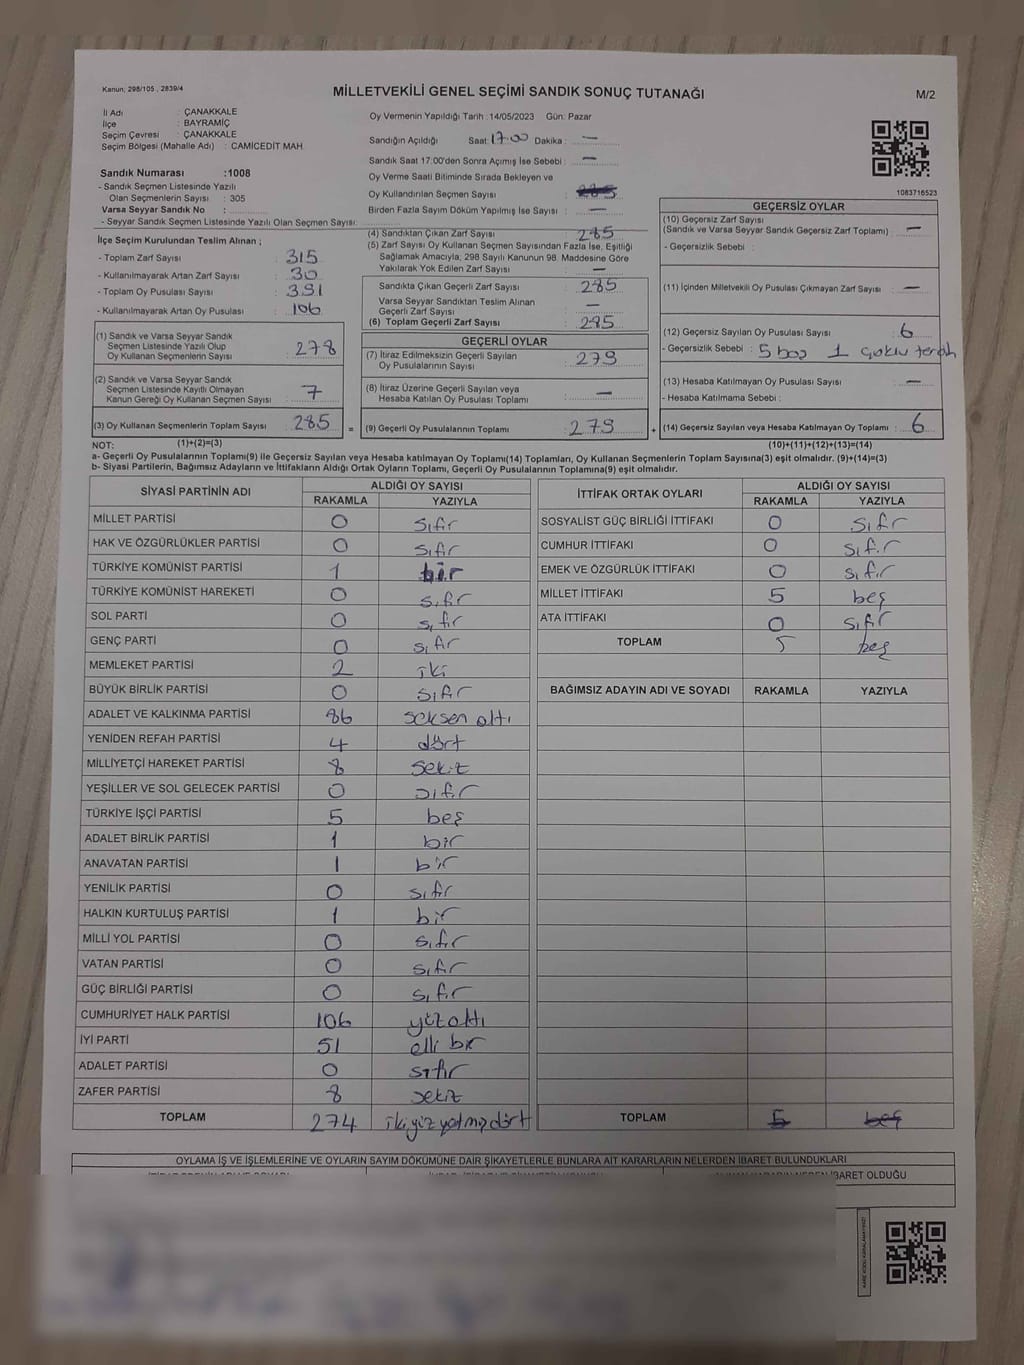 Kanun; 298/105 , 2839/4
MİLLETVEKİLİ GENEL SEÇİMİ SANDIK SONUÇ TUTANAĞI
M/2
İl Adı : ÇANAKKALE
İlçe : BAYRAMİÇ
Seçim Çevresi : ÇANAKKALE
Seçim Bölgesi (Mahalle Adı) : CAMİCEDİT MAH.
Sandık Numarası :1008
- Sandık Seçmen Listesinde Yazılı
Olan Seçmenlerin Sayısı : 305
Varsa Seyyar Sandık No :
- Seyyar Sandık Seçmen Listesinde Yazılı Olan Seçmen Sayısı:
İlçe Seçim Kurulundan Teslim Alınan ;
- Toplam Zarf Sayısı : 315
- Kullanılmayarak Artan Zarf Sayısı : 30
- Toplam Oy Pusulası Sayısı : 391
- Kullanılmayarak Artan Oy Pusulası : 106
(1) Sandık ve Varsa Seyyar Sandık
Seçmen Listesinde Yazılı Olup
Oy Kullanan Seçmenlerin Sayısı : 278
(2) Sandık ve Varsa Seyyar Sandık
Seçmen Listesinde Kayıtlı Olmayan
Kanun Gereği Oy Kullanan Seçmen Sayısı : 7
(3) Oy Kullanan Seçmenlerin Toplam Sayısı : 285 =
Oy Vermenin Yapıldığı Tarih : 14/05/2023 Gün: Pazar
Sandığın Açıldığı Saat: 17.00 Dakika : —
Sandık Saat 17:00'den Sonra Açımış İse Sebebi : —
Oy Verme Saati Bitiminde Sırada Bekleyen ve
Oy Kullandırılan Seçmen Sayısı :
Birden Fazla Sayım Döküm Yapılmış İse Sayısı : —
(4) Sandıktan Çıkan Zarf Sayısı : 285
(5) Zarf Sayısı Oy Kullanan Seçmen Sayısından Fazla İse, Eşitliği
Sağlamak Amacıyla; 298 Sayılı Kanunun 98. Maddesine Göre
Yakılarak Yok Edilen Zarf Sayısı : —
Sandıkta Çıkan Geçerli Zarf Sayısı : 285
Varsa Seyyar Sandıktan Teslim Alınan
Geçerli Zarf Sayısı : —
(6) Toplam Geçerli Zarf Sayısı : 285
GEÇERLİ OYLAR
(7) İtiraz Edilmeksizin Geçerli Sayılan
Oy Pusulalarının Sayısı : 279
(8) İtiraz Üzerine Geçerli Sayılan veya
Hesaba Katılan Oy Pusulası Toplamı : —
(9) Geçerli Oy Pusulalarının Toplamı : 279 +
1083716523
GEÇERSİZ OYLAR
(10) Geçersiz Zarf Sayısı
(Sandık ve Varsa Seyyar Sandık Geçersiz Zarf Toplamı) : —
- Geçersizlik Sebebi :
(11) İçinden Milletvekili Oy Pusulası Çıkmayan Zarf Sayısı : —
(12) Geçersiz Sayılan Oy Pusulası Sayısı : 6
- Geçersizlik Sebebi : 5 boş 1 çoklu tercih
(13) Hesaba Katılmayan Oy Pusulası Sayısı : —
- Hesaba Katılmama Sebebi :
(14) Geçersiz Sayılan veya Hesaba Katılmayan Oy Toplamı : 6
NOT: (1)+(2)=(3) (10)+(11)+(12)+(13)=(14)
a- Geçerli Oy Pusulalarının Toplamı(9) ile Geçersiz Sayılan veya Hesaba Katılmayan Oy Toplamı(14) Toplamları, Oy Kullanan Seçmenlerin Toplam Sayısına(3) eşit olmalıdır. (9)+(14)=(3)
b- Siyasi Partilerin, Bağımsız Adayların ve İttifakların Aldığı Ortak Oyların Toplamı, Geçerli Oy Pusulalarının Toplamına(9) eşit olmalıdır.
SİYASİ PARTİNİN ADI ALDIĞI OY SAYISI
RAKAMLA YAZIYLA
MİLLET PARTİSİ 0 sıfır
HAK VE ÖZGÜRLÜKLER PARTİSİ 0 sıfır
TÜRKİYE KOMÜNİST PARTİSİ 1 bir
TÜRKİYE KOMÜNİST HAREKETİ 0 sıfır
SOL PARTİ 0 sıfır
GENÇ PARTİ 0 sıfır
MEMLEKET PARTİSİ 2 iki
BÜYÜK BİRLİK PARTİSİ 0 sıfır
ADALET VE KALKINMA PARTİSİ 86 seksen altı
YENİDEN REFAH PARTİSİ 4 dört
MİLLİYETÇİ HAREKET PARTİSİ 8 sekiz
YEŞİLLER VE SOL GELECEK PARTİSİ 0 sıfır
TÜRKİYE İŞÇİ PARTİSİ 5 beş
ADALET BİRLİK PARTİSİ 1 bir
ANAVATAN PARTİSİ 1 bir
YENİLİK PARTİSİ 0 sıfır
HALKIN KURTULUŞ PARTİSİ 1 bir
MİLLİ YOL PARTİSİ 0 sıfır
VATAN PARTİSİ 0 sıfır
GÜÇ BİRLİĞİ PARTİSİ 0 sıfır
CUMHURİYET HALK PARTİSİ 106 yüz altı
İYİ PARTİ 51 elli bir
ADALET PARTİSİ 0 sıfır
ZAFER PARTİSİ 8 sekiz
TOPLAM 274 ikiyüz yetmiş dört
İTTİFAK ORTAK OYLARI ALDIĞI OY SAYISI
RAKAMLA YAZIYLA
SOSYALİST GÜÇ BİRLİĞİ İTTİFAKI 0 sıfır
CUMHUR İTTİFAKI 0 sıfır
EMEK VE ÖZGÜRLÜK İTTİFAKI 0 sıfır
MİLLET İTTİFAKI 5 beş
ATA İTTİFAKI 0 sıfır
TOPLAM 5 beş
BAĞIMSIZ ADAYIN ADI VE SOYADI RAKAMLA YAZIYLA
TOPLAM 5 beş
OYLAMA İŞ VE İŞLEMLERİNE VE OYLARIN SAYIM DÖKÜMÜNE DAİR ŞİKAYETLERLE BUNLARA AİT KARARLARIN NELERDEN İBARET BULUNDUKLARI
İBARET OLDUĞU